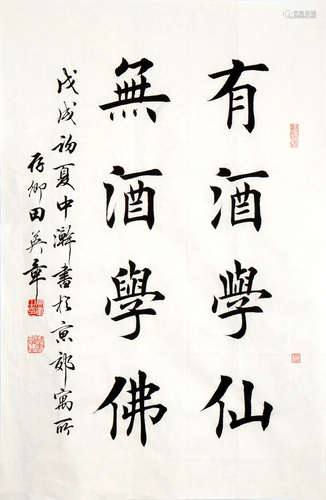 有酒學仙
無酒學佛
戊戌初夏中澣書於京郊寓所
存卿田英章